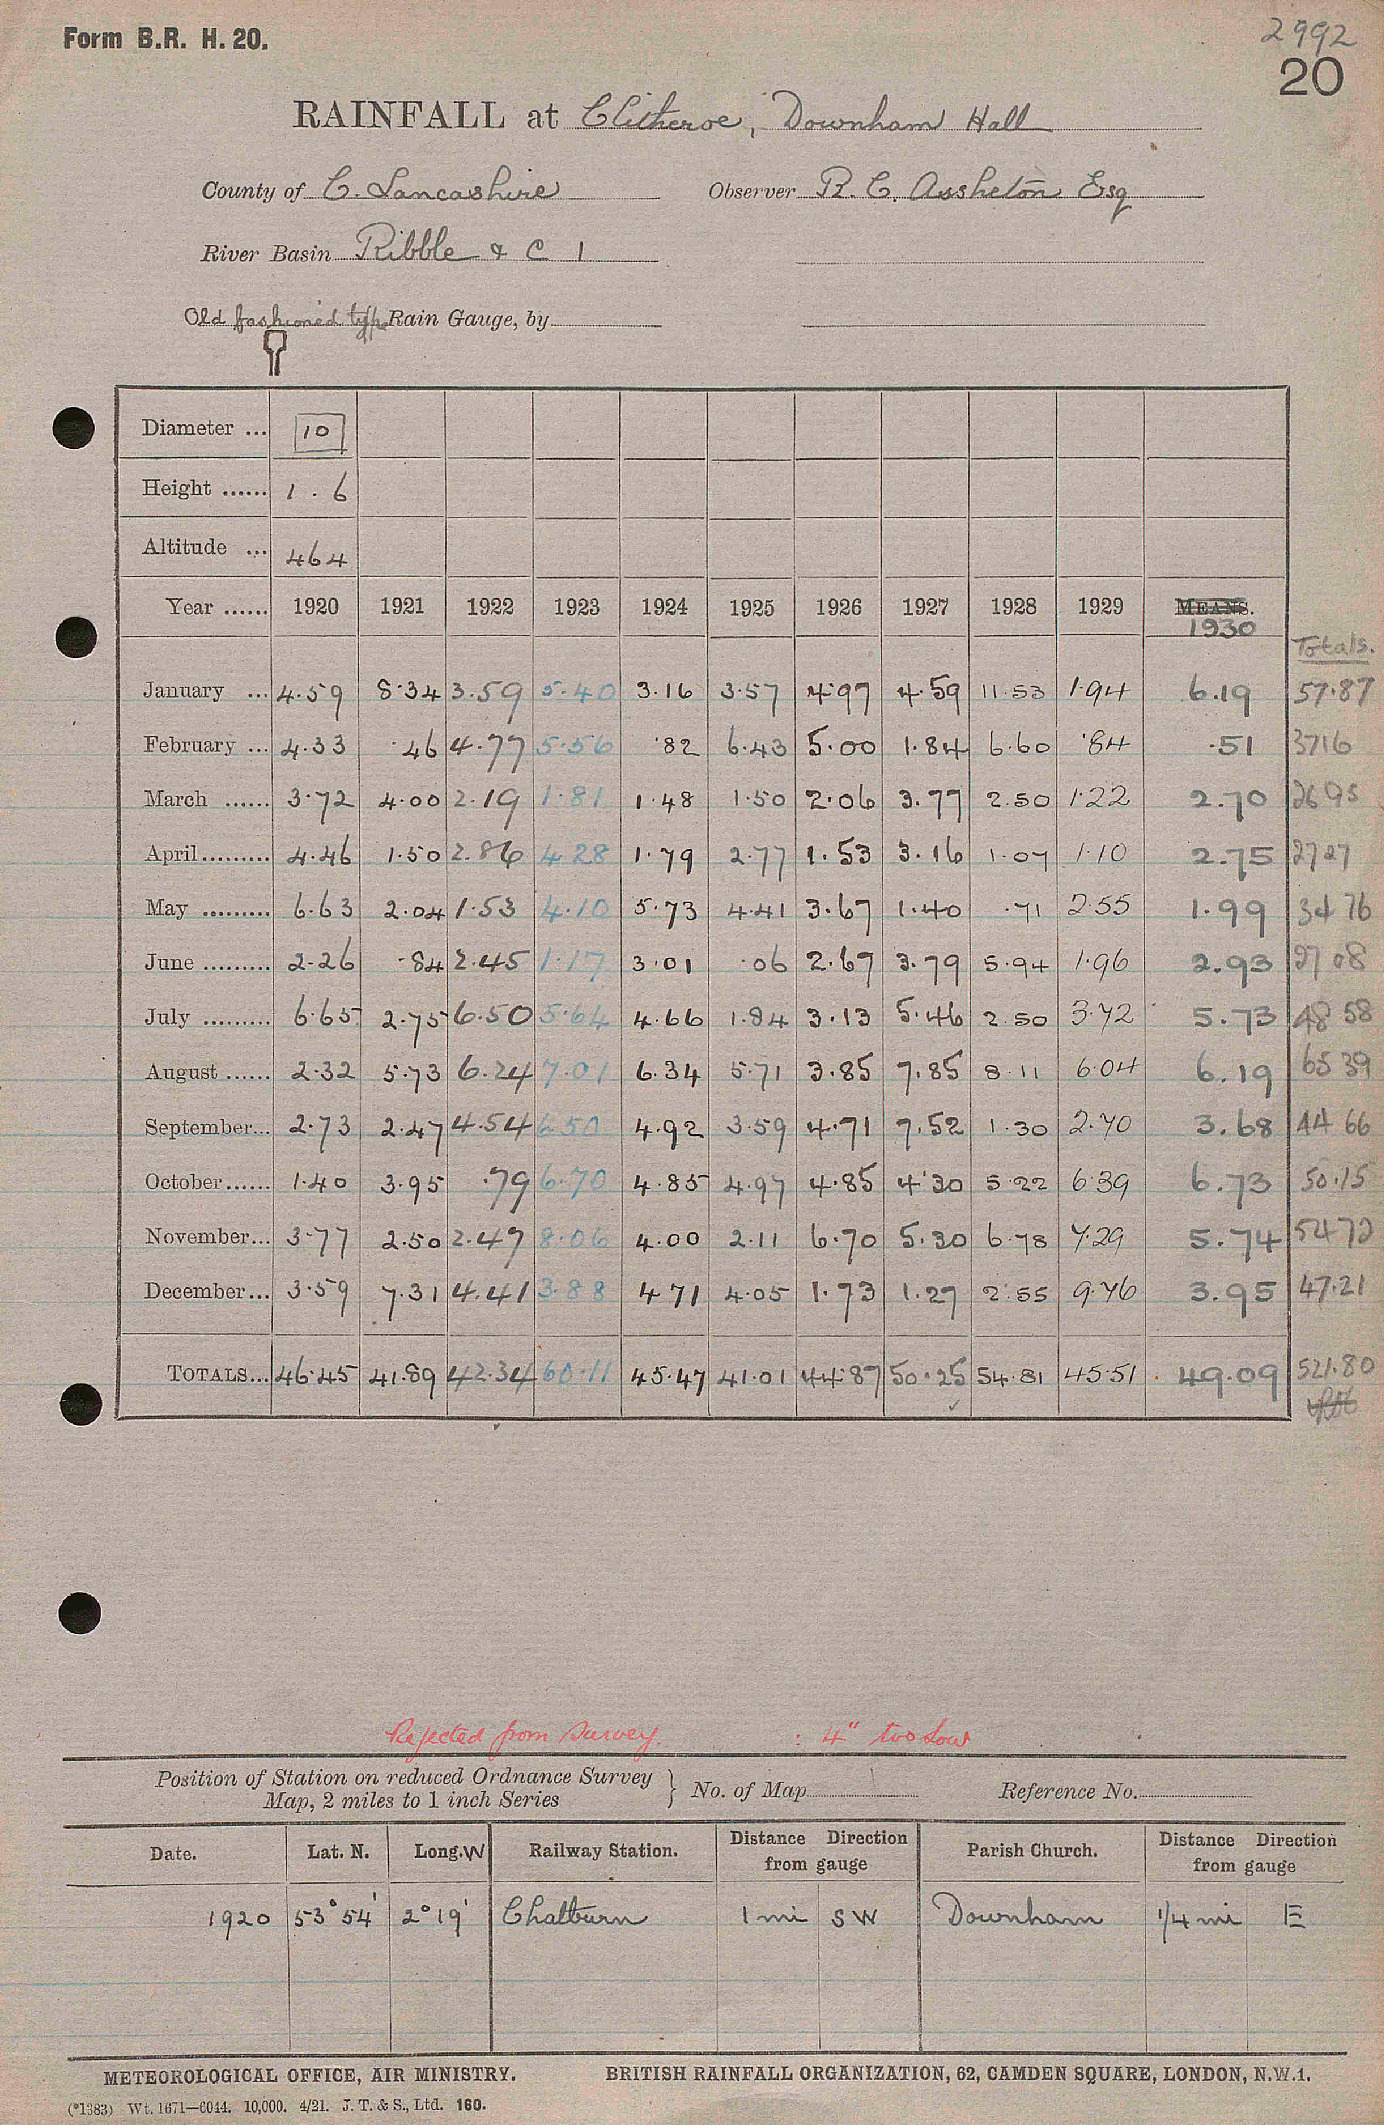 Form B.R. H. 20.
2992
20
RAINFALL at Clitheroe, Downham Hall
County of C. Lancashire Observer R. C. Assheton Esq
River Basin Ribble & C 1
Old fashioned type Rain Gauge, by
Diameter ... 10
Height ...... 1 . 6
Altitude ... 464
Year ...... 1920 1921 1922 1923 1924 1925 1926 1927 1928 1929 MEANS. 1930 Totals.
January ... 4.59 8.34 3.59 5.40 3.16 3.57 4.97 4.59 11.53 1.94 6.19 57.87
February ... 4.33 .46 4.77 5.56 .82 6.43 5.00 1.84 6.60 .84 .51 3716
March ...... 3.72 4.00 2.19 1.81 1.48 1.50 2.06 3.77 2.50 1.22 2.70 2695
April ......... 4.46 1.50 2.86 4.28 1.79 2.77 1.53 3.16 1.07 1.10 2.75 2727
May ......... 6.63 2.04 1.53 4.10 5.73 4.41 3.67 1.40 .71 2.55 1.99 34 76
June ......... 2.26 .84 2.45 1.17 3.01 .06 2.67 3.79 5.94 1.96 2.93 27 08
July ......... 6.65 2.75 6.50 5.64 4.66 1.84 3.13 5.46 2.50 3.72 5.73 48 58
August ...... 2.32 5.73 6.24 7.01 6.34 5.71 3.85 7.85 8.11 6.04 6.19 65 39
September... 2.73 2.47 4.54 6.50 4.92 3.59 4.71 7.52 1.30 2.70 3.68 44 66
October...... 1.40 3.95 .79 6.70 4.85 4.97 4.85 4.30 5.22 6.39 6.73 50.15
November... 3.77 2.50 2.47 8.06 4.00 2.11 6.70 5.30 6.78 7.29 5.74 5472
December... 3.59 7.31 4.41 3.88 4.71 4.05 1.73 1.27 2.55 9.76 3.95 47.21
TOTALS... 46.45 41.89 42.34 60.11 45.47 41.01 44.87 50.25 54.81 45.51 49.09 521.80
Rejected from Survey. : 4" too low
Position of Station on reduced Ordnance Survey
Map, 2 miles to 1 inch Series } No. of Map Reference No.
Date. Lat. N. Long. W Railway Station. Distance Direction from gauge Parish Church. Distance Direction from gauge
1920 53° 54' 2° 19' Chatburn 1 mi SW Downham 1/4 mi E
METEOROLOGICAL OFFICE, AIR MINISTRY. BRITISH RAINFALL ORGANIZATION, 62, CAMDEN SQUARE, LONDON, N.W.1.
(*1383) Wt. 1671—6044. 10,000. 4/21. J. T. & S., Ltd. 160.